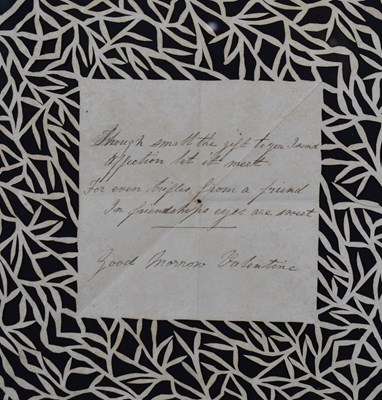 Though small the gift to you I send
Affection let it meet
For even trifles from a friend
In friendships eyes are sweet
Good Morrow Valentine